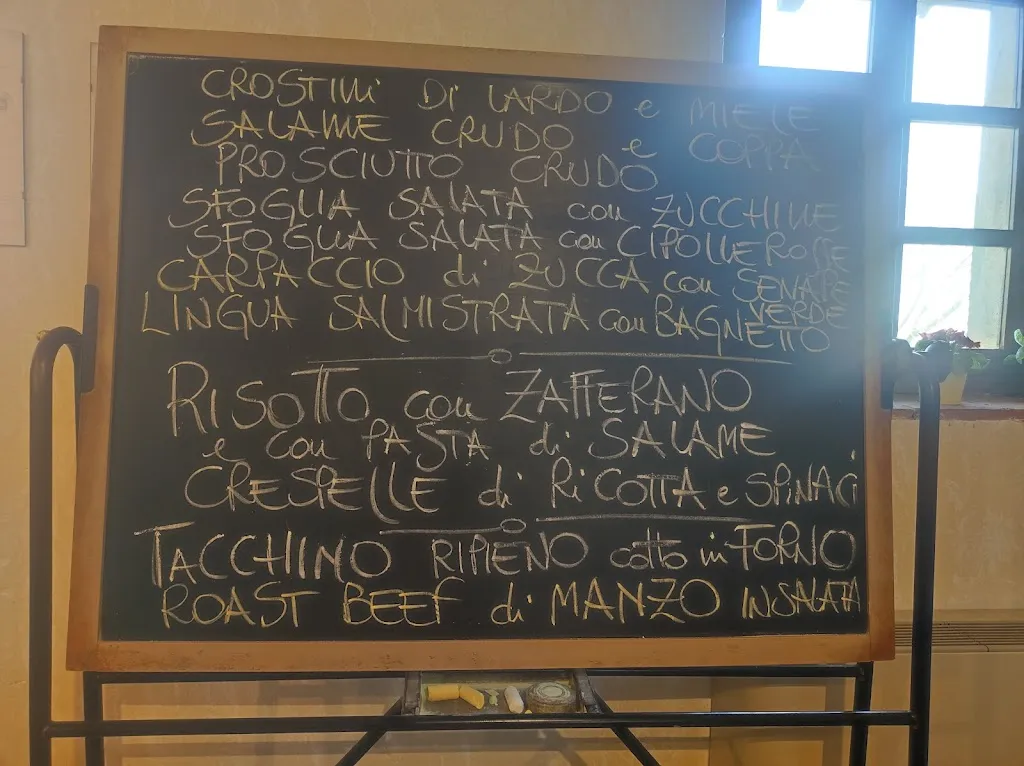 CROSTINI DI LARDO e MIELE
SALAME CRUDO e COPPA
PROSCIUTTO CRUDO
SFOGLIA SALATA con ZUCCHINE
SFOGLIA SALATA con CIPOLLE ROSSE
CARPACCIO di ZUCCA con SENAPE
LINGUA SALMISTRATA con BAGNETTO VERDE
RISOTTO con ZAFFERANO
e con PASTA di SALAME
CRESPELLE di RICOTTA e SPINACI
TACCHINO RIPIENO cotto in FORNO
ROAST BEEF di MANZO INSALATA